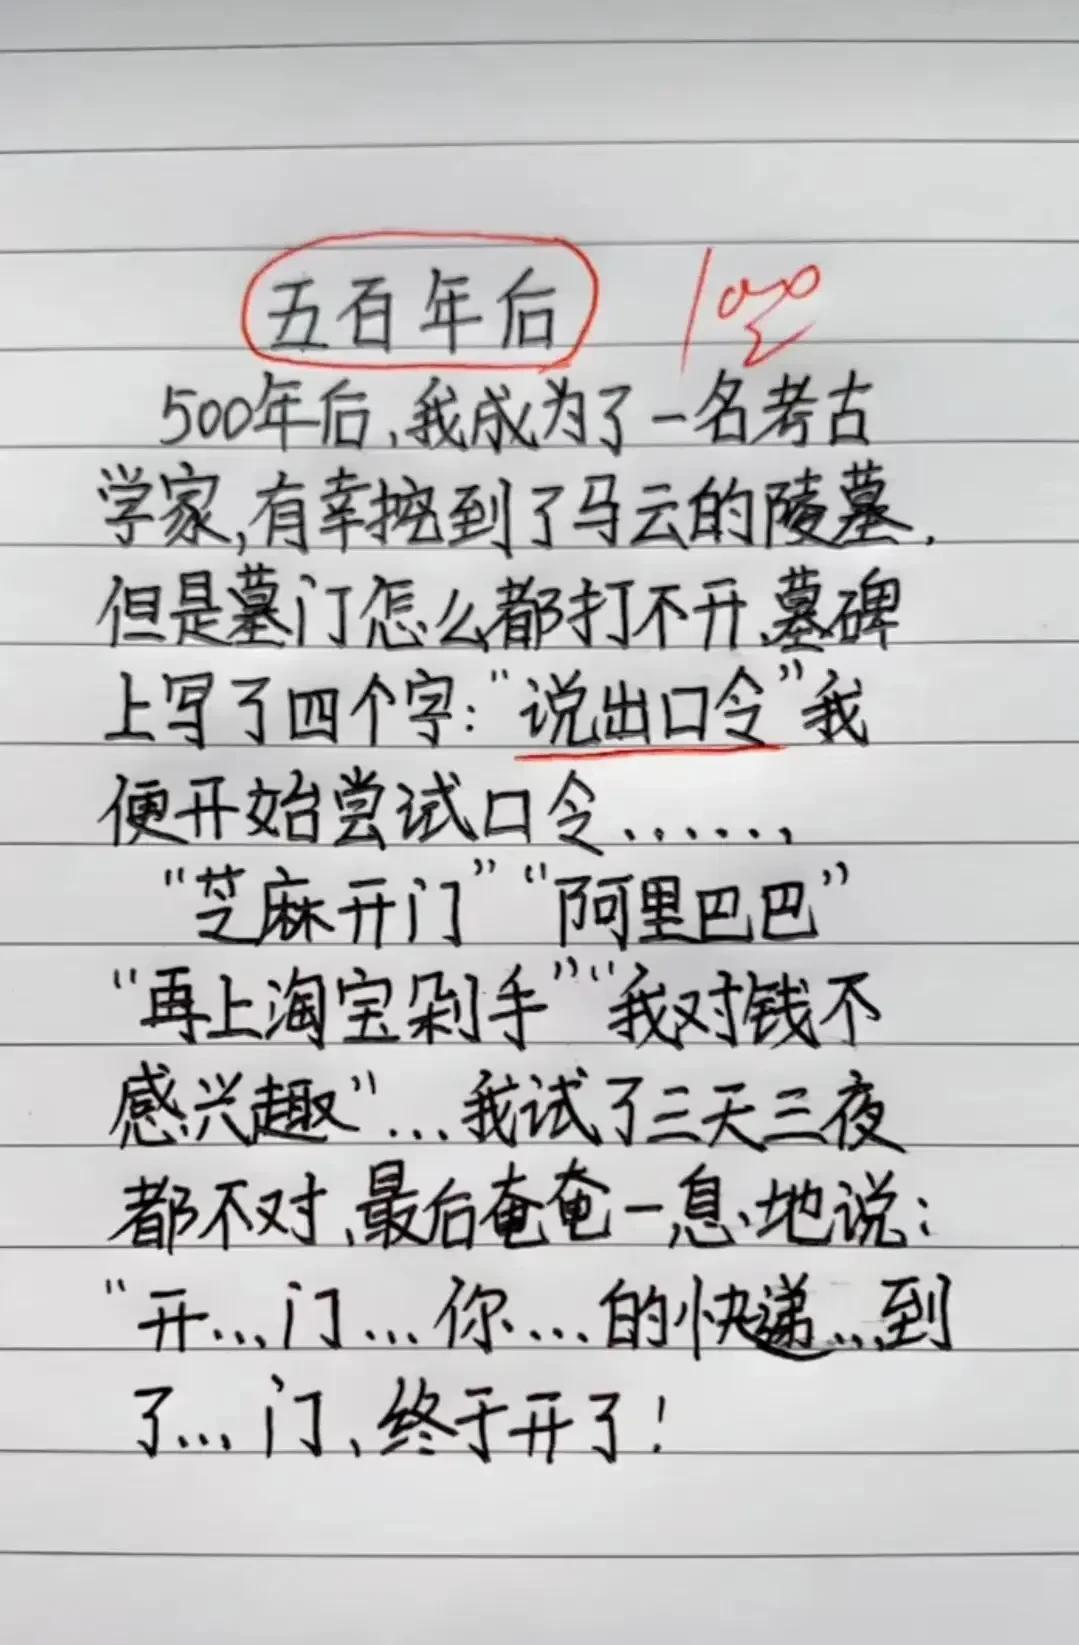 五百年后 100
500年后,我成为了一名考古
学家,有幸挖到了马云的陵墓.
但是墓门怎么都打不开、墓碑
上写了四个字:“说出口令”我
便开始尝试口令......,
“芝麻开门”“阿里巴巴”
“再上淘宝剁手”“我对钱不
感兴趣”...我试了三天三夜
都不对、最后奄奄一息地说:
“开...门...你...的快递...到
了...门、终于开了!